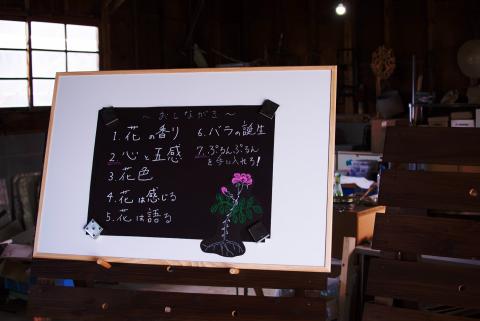 〜おしながき〜
1. 花の香り
2. 心と五感
3. 花色
4. 花は感じる
5. 花は語る
6. バラの誕生
7. ぷるんぷるん
を手に入れろ!